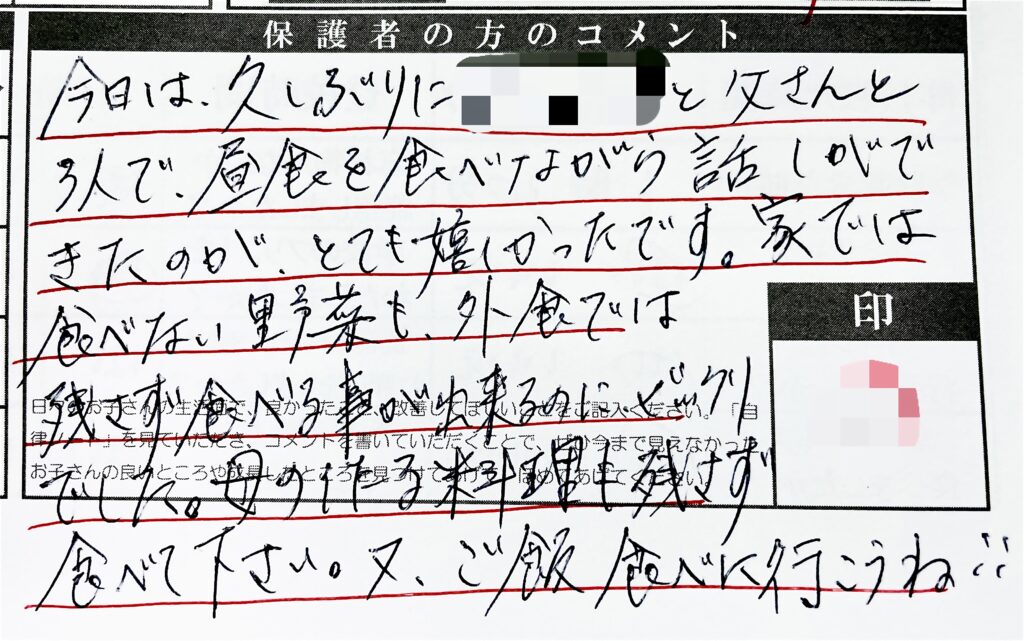 保護者の方のコメント
今日は、久しぶりに と父さんと
3人で、昼食を食べながら話しがで
きたのが、とても嬉しかったです。家では
食べない野菜も、外食では
印
残さず食べる事が出来るのに、ビックリ
お子さんの生活面で、良かったこと、改善してほしいことをご記入ください。「自
律ノート」を見ていただき、コメントを書いていただくことで、ぜひ今まで見えなかった
でした。母の 料理も残さず
お子さんの良いところや成長したところを見つけてあげて、ほめてあげてください。
食べて下さい。又、ご飯食べに行こうね